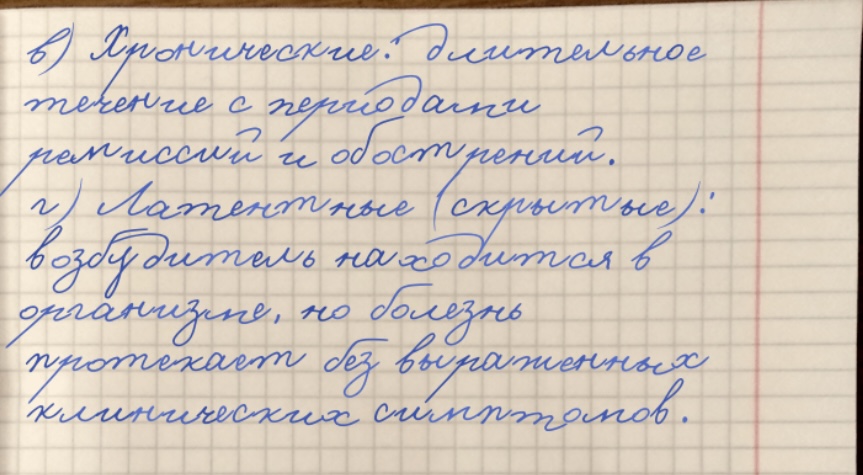 в) Хронические: длительное
течение с периодами
ремиссий и обострений.
г) Латентные (скрытые):
возбудитель находится в
организме, но болезнь
протекает без выраженных
клинических симптомов.